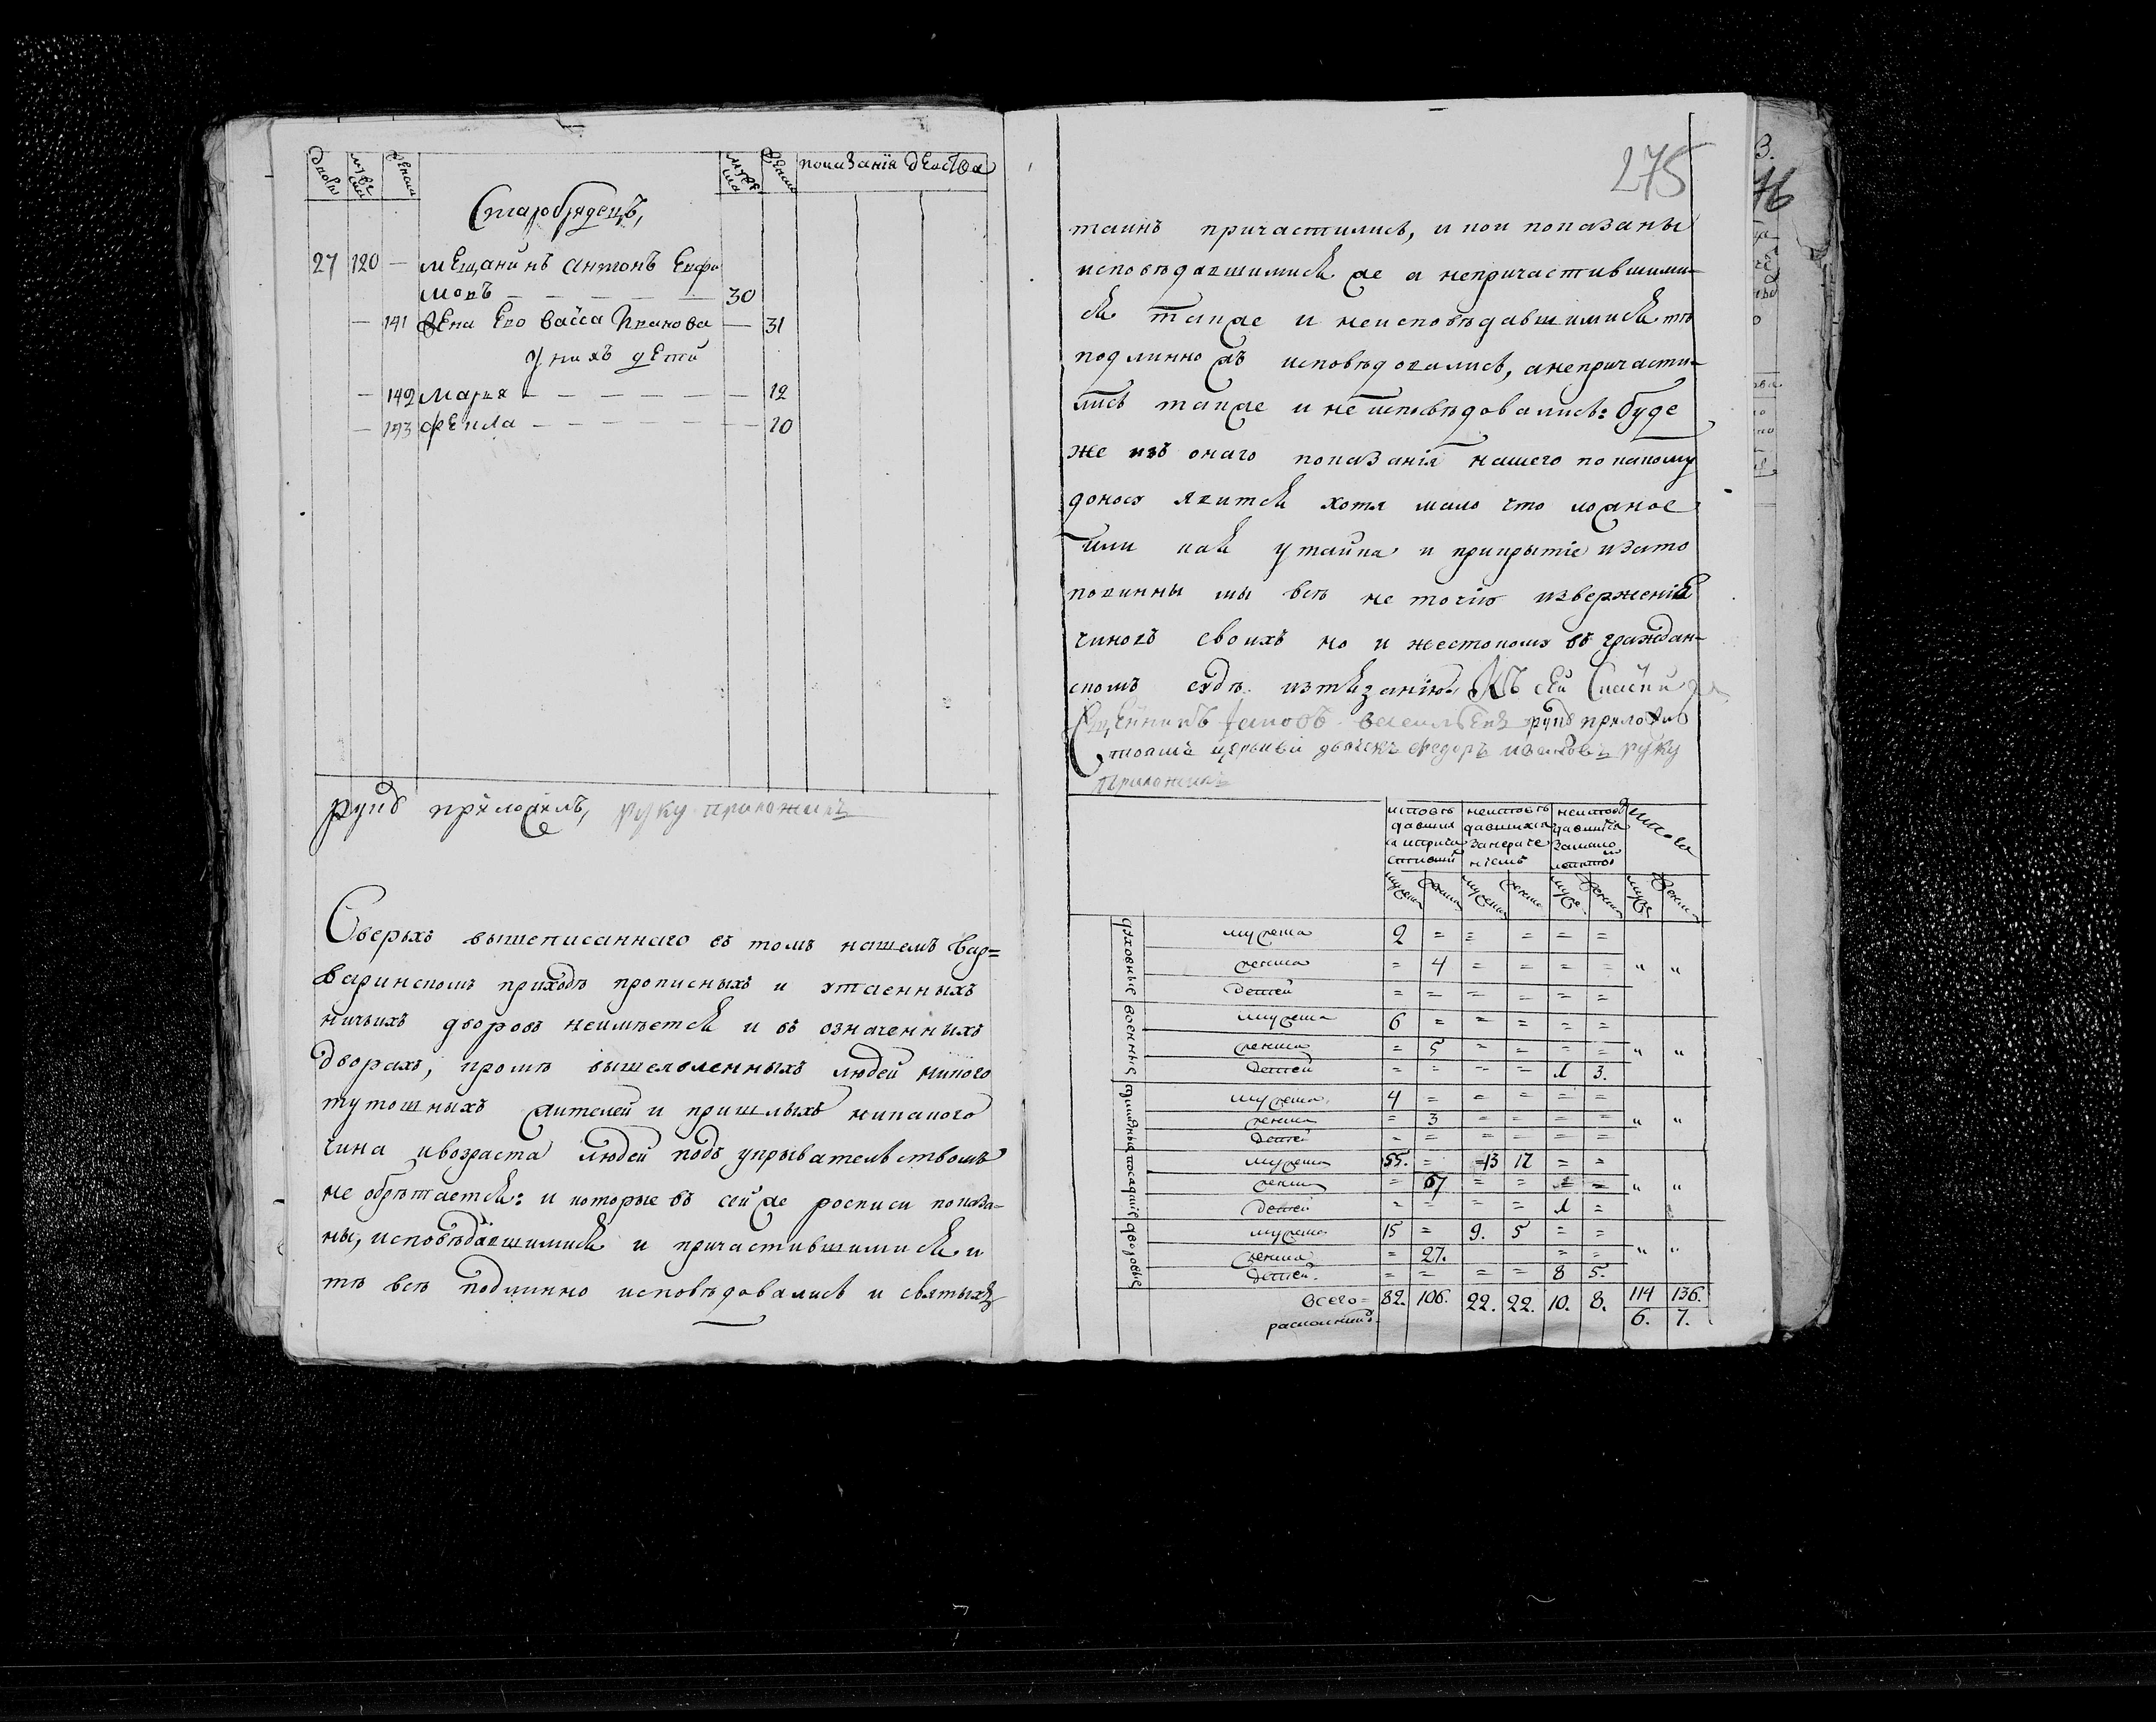 дворы мужеска женска мужеска женска показанїи действа
Старобрядецъ,
27 120 — мещанинъ антонъ Евфи
мовъ — — — — — 30
— 141 жена Его васса Иванова — 31
у нихъ дети
— 142 Марья — — — — — — 12
— 143 Фекла — — — — — — 10
руку приложилъ, руку приложилъ
Сверьхъ вышеписаннаго въ томъ нашемъ Вар=
варинскомъ приходѣ прописныхъ и утаенныхъ
ничьихъ дворовъ неимѣется и въ означенныхъ
дворахъ, кромѣ вышеявленныхъ людей никого
тутошныхъ жителей и пришлыхъ никакого
чина ивозраста людей подъ укрывательствомъ
не обрѣтается: и которые въ сей же росписи показа=
ны, исповѣдавшимися и причастившимися и
тѣ всѣ подлинно исповѣдовались и святыхъ
275
таинъ причастились, и кои показаны
исповѣдавшимися же а непричастившими=
ся также и неисповѣдавшимися тѣ
подлинно жъ исповѣдовались, анепричасти=
лись также и не исповѣдовались: буде
же изъ онаго показанія нашего по какому
доносу явится хотя мало что ложное
или кая утайка и прикрытіе изато
повинны мы всѣ не точію изверженія
чиновъ своихъ но и жестокому въ граждан=
скомъ судѣ изтязанію. Къ сей
Священникъ Іаковъ васильевъ руку приложилъ
церькви дьячекъ Федоръ ивановъ руку
приложилъ
исповѣ неисповѣ неисповѣ итого
давшихся давшихся давшихся
и прича за нераче замало
стившихся ніемъ лѣтствомъ
мужеска женска мужеска женска муже. женска муже женска
духовные мужеска 2 = = = = =
женска = 4 = = = = " "
детей = = = = = =
военные мужеска 6 = = = = =
женска = 5 = = = = " "
детей = = = = 1 3.
мужеска 4 = = = = =
женска = 3 = = = = " "
детей = = = = = =
посадскіе мужеска 55. = 13 17 = =
женска = 67 = = = = " "
детей = = = = 1 =
дворовые мужеска 15 = 9. 5 = =
женска = 27. = = " "
детей. = = = = 8 5.
всего= 82. 106. 22. 22. 10. 8. 114 136.
6. 7.